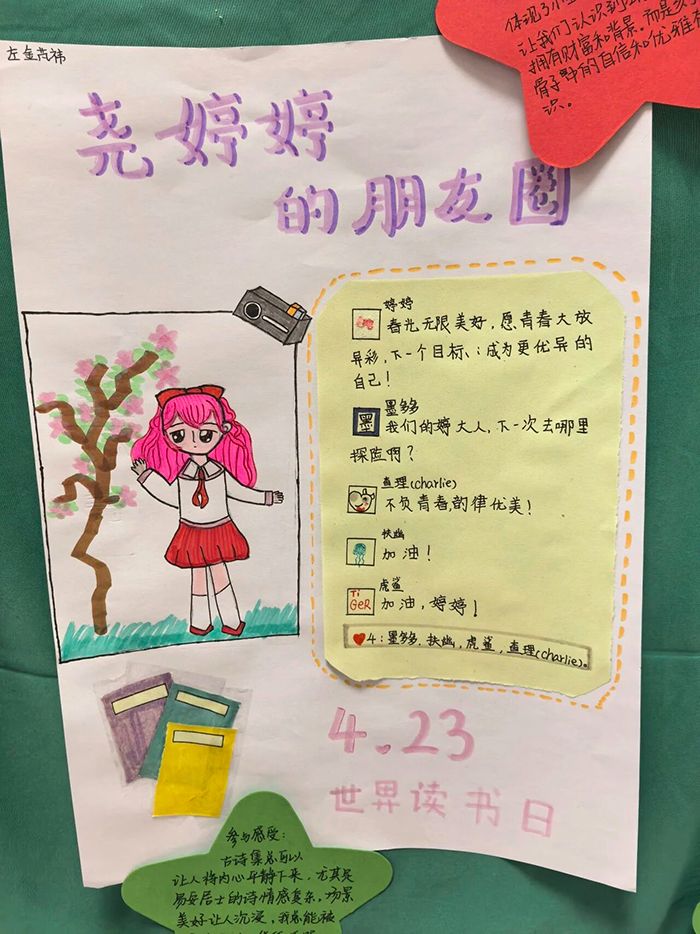 体现了
让我们认识到
拥有财富和背景,而是
骨子中的自信和优雅
识。
尧婷婷
的朋友圈
婷婷
春光无限美好,愿青春大放
异彩,下一个目标:成为更优异的
自己!
墨
墨多多
我们的婷大人,下一次去哪里
探险啊?
查理(charlie)
不负青春,韵律优美!
扶幽
加油!
TiGeR
虎鲨
加油,婷婷!
4:墨多多,扶幽,虎鲨,查理(charlie)。
4.23
世界读书日
参与感受:
古诗集总可以
让人将内心平静下来,尤其是
易安居士的诗情感复杂,场景
美好让人沉浸,我总能被